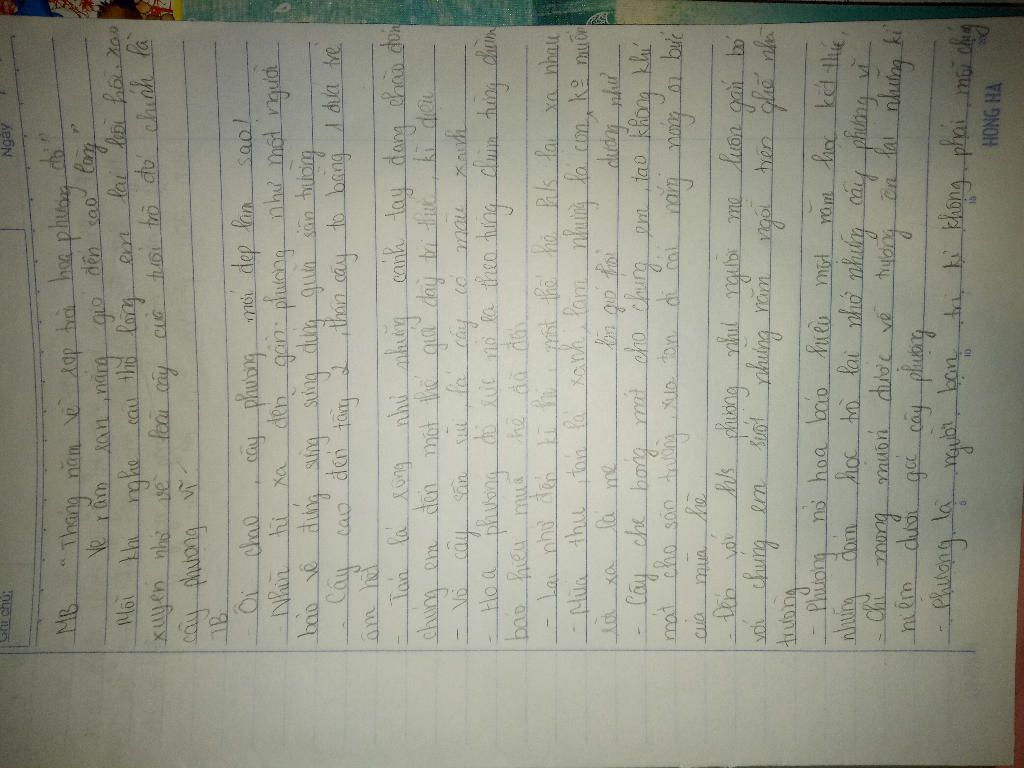 Ngày
Ghi chú:
MB "Tháng năm về rợp trời hoa phượng đỏ
Ve râm ran nắng gió đến sao lòng"
Mỗi khi nghe câu thơ lòng em lại bồi hồi xao
xuyến nhớ về loài cây của tuổi trò đó chính là
cây phượng vĩ
TB
- Ôi chao, cây phượng mới đẹp làm sao!
- Nhìn từ xa đến gần: phượng như một người
bảo vệ đứng sừng sững giữa sân trường
- Cây cao đến tầng 2, thân cây to bằng 1 đứa trẻ
ôm hết
- Tán lá rộng như những cánh tay đang chào đón
chúng em đến một thế giới đầy tri thức, kì diệu
- Vỏ cây sần sùi, lá cây có màu xanh
- Hoa phượng đỏ rực nở ra theo từng chùm từng chùm
báo hiệu mùa hè đã đến
- Lại nhớ đến kì thi, một thế hệ h/s lại xa nhau
- Mùa thu, tán lá xanh, làm những lá con, ko muốn
rời xa lá mẹ
- Cây che bóng mát cho chúng em, tạo không khí
mát cho sân trường, xua tan đi cái nóng nung oi bức
của mùa hè
- Đến với h/s phượng như người mẹ luôn gắn bó
với chúng em suốt những năm ngồi trên ghế nhà
trường
- Phượng nở hoa báo hiệu một năm học kết thúc,
những đám học trò lại nhớ những cây phượng vĩ
- Chỉ mong muốn được về trường ôn lại những kỉ
niệm dưới gốc cây phượng
- Phượng là người bạn tri kỉ không phải mỗi chúng
HONG HA